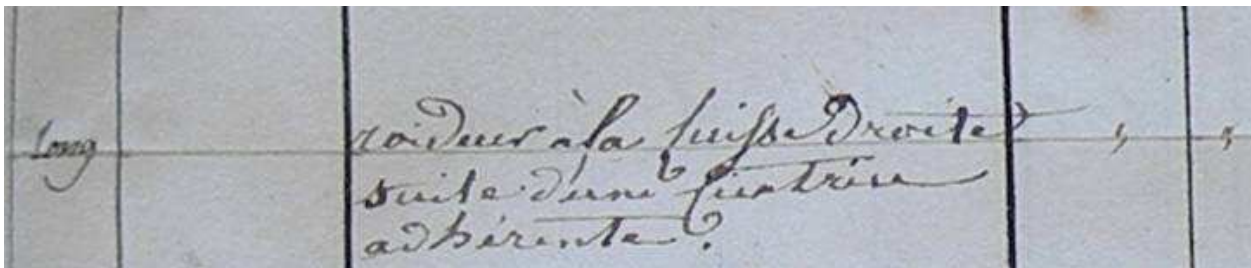 Long
roideur à la Cuisse Droite " "
suite d'une Cicatrice
adhérente.